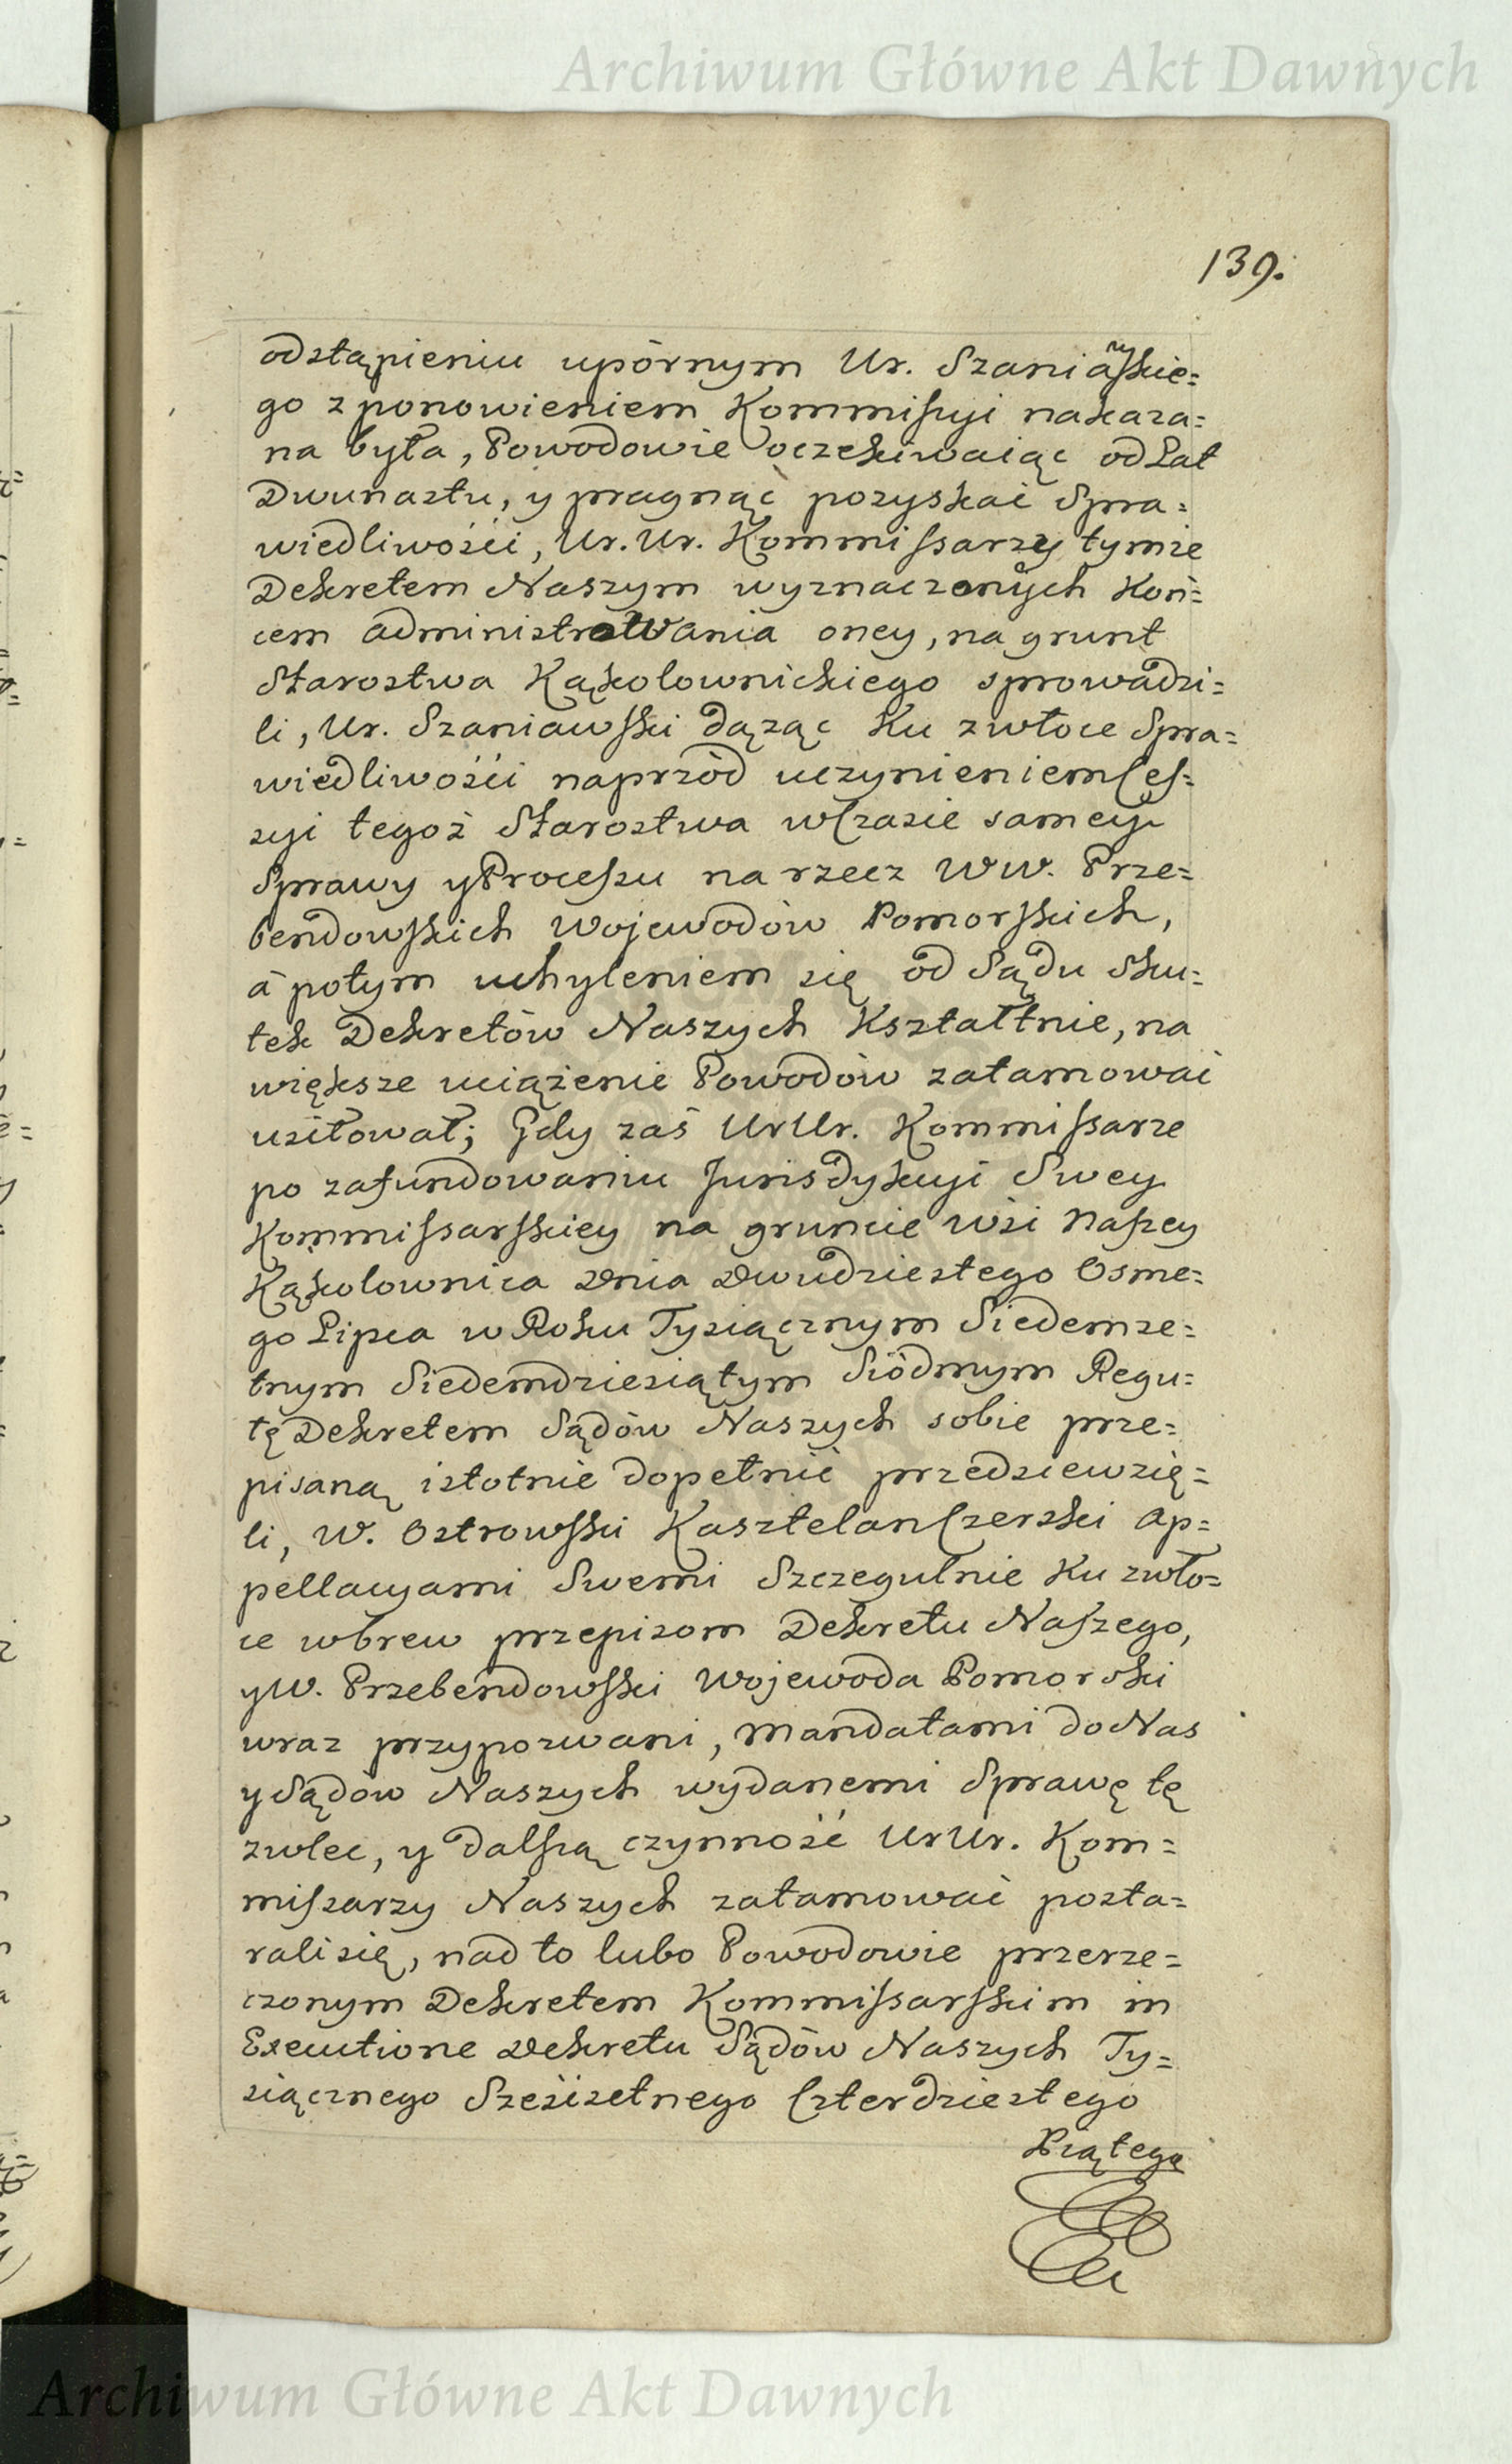 Archiwum Główne Akt Dawnych
139.
odstąpieniu upórnym Ur. Szaniawskie=
go z ponowieniem Kommissyi nakaza=
na była, Powodowie oczekiwaiąc od Lat
Dwunastu, y pragnąć pozyskać Spra=
wiedliwości, Ur. Ur. Kommissarzy tymże
Dekretem Naszym wyznaczonych Koń=
cem administrowania oney, na grunt
Starostwa Kąkolownickiego sprowadzi=
li, Ur. Szaniawski dążąc Ku zwłoce Spra=
wiedliwości naprzód uczynieniem Ces=
syi tegoż Starostwa w Czasie samey
Sprawy y Processu na rzecz WW. Prze=
bendowskich Wojewodów Pomorskich,
á potym uchyleniem się od Sądu Sku=
tek Dekretów Naszych Kształtnie, na
większe uciążenie Powodów zatamować
usiłował; Gdy zaś Ur Ur. Kommissarze
po zafundowaniu Jurisdykcyi Swey
Kommissarskiey na gruncie wsi Naszey
Kąkolownica Dnia Dwudziestego Osme=
go Lipca w Roku Tysiącznym Siedemse=
tnym Siedemdziesiątym Siódmym Regu=
łę Dekretem Sądów Naszych sobie prze=
pisaną istotnie dopełnić przedsiewzię=
li, W. Ostrowski Kasztelan Czerski Ap=
pellacyami Swemi Szczegulnie Ku zwło=
ce wbrew przepisom Dekretu Naszego,
y W. Przebendowski Wojewoda Pomorski
wraz przypozwani, Mandatami do Nas
y Sądów Naszych wydanemi Sprawę tę
zwlec, y dalszą czynność Ur Ur. Kom=
missarzy Naszych zatamować posta=
rali się, nad to lubo Powodowie przerze=
czonym Dekretem Kommissarskim in
Executione Dekretu Sądów Naszych Ty=
siącznego Sześćsetnego Czterdziestego
Piątego
Archiwum Główne Akt Dawnych